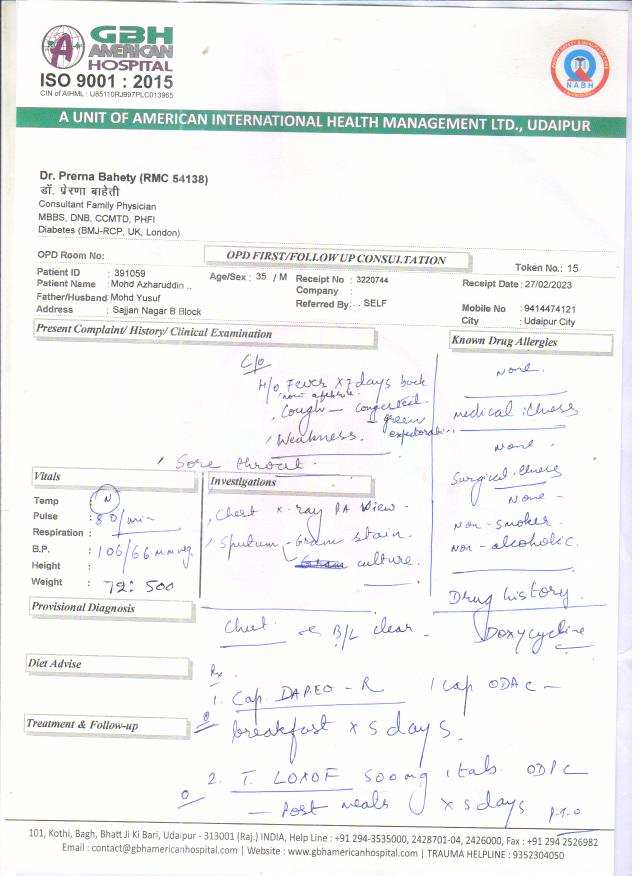 GBH
AMERICAN
HOSPITAL
ISO 9001 : 2015
CIN of AIHML : U85110RJ997PLC013965
NABH
A UNIT OF AMERICAN INTERNATIONAL HEALTH MANAGEMENT LTD., UDAIPUR
Dr. Prerna Bahety (RMC 54138)
डॉ. प्रेरणा बाहेती
Consultant Family Physician
MBBS, DNB, CCMTD, PHFI
Diabetes (BMJ-RCP, UK, London)
OPD Room No:
OPD FIRST/FOLLOW UP CONSULTATION
Token No.: 15
Patient ID : 391059
Age/Sex : 35 / M
Receipt No : 3220744
Receipt Date : 27/02/2023
Patient Name : Mohd Azharuddin ..
Company :
Father/Husband: Mohd Yusuf
Referred By: . . SELF
Mobile No : 9414474121
Address : Sajjan Nagar B Block
City : Udaipur City
Present Complaint/ History/ Clinical Examination
Known Drug Allergies
C/o
H/o Fever x 2 days back
now afebrile.
, Cough – congested.
– green
expectorati..
, Weakness.
, Sore throat.
None.
medical illness
None.
Surgical illness
None –
Non-smoker.
Non-alcoholic.
Drug history.
Doxycycline
Vitals
Temp : N
Pulse : 80/min
Respiration :
B.P. : 106/66 mmHg
Height :
Weight : 72:500
Investigations
, Chest x-ray PA view –
, Sputum – Gram stain.
culture.
Provisional Diagnosis
Chest B/L clear –
Diet Advise
Rx.
1. Cap. DAPEO – R 1 cap ODAC –
Treatment & Follow-up
breakfast x 5 days.
2. T. LOXOF 500mg 1 tab. ODPC
– Post meals x 5 days P.T.O
101, Kothi, Bagh, Bhatt Ji Ki Bari, Udaipur - 313001 (Raj.) INDIA, Help Line : +91 294-3535000, 2428701-04, 2426000, Fax : +91 294 2526982
Email : contact@gbhamericanhospital.com | Website : www.gbhamericanhospital.com | TRAUMA HELPLINE : 9352304050